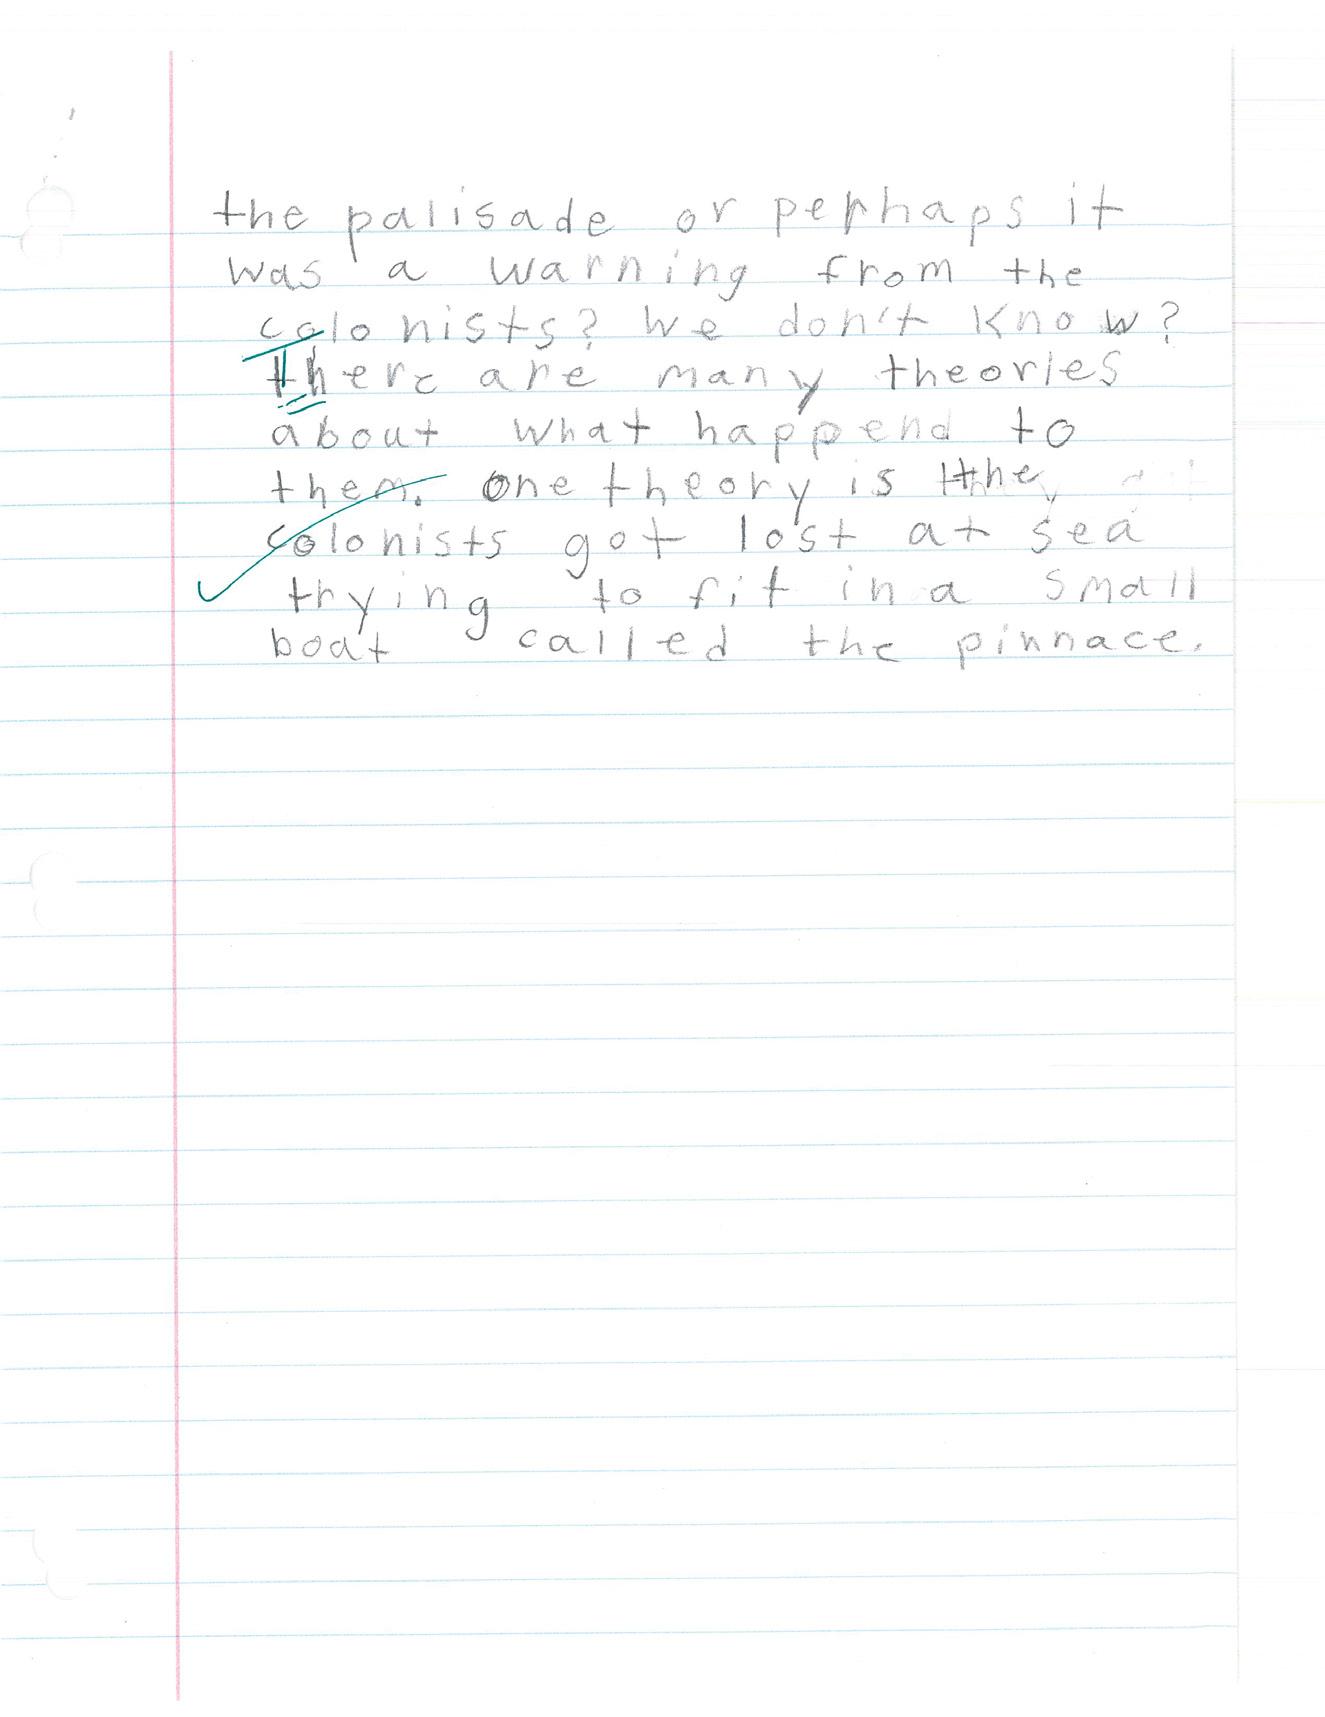 the palisade or perhaps it
was a warning from the
colonists? We don't know?
There are many theories
about what happend to
them. One theory is the
colonists got lost at sea
trying to fit in a small
boat called the pinnace.